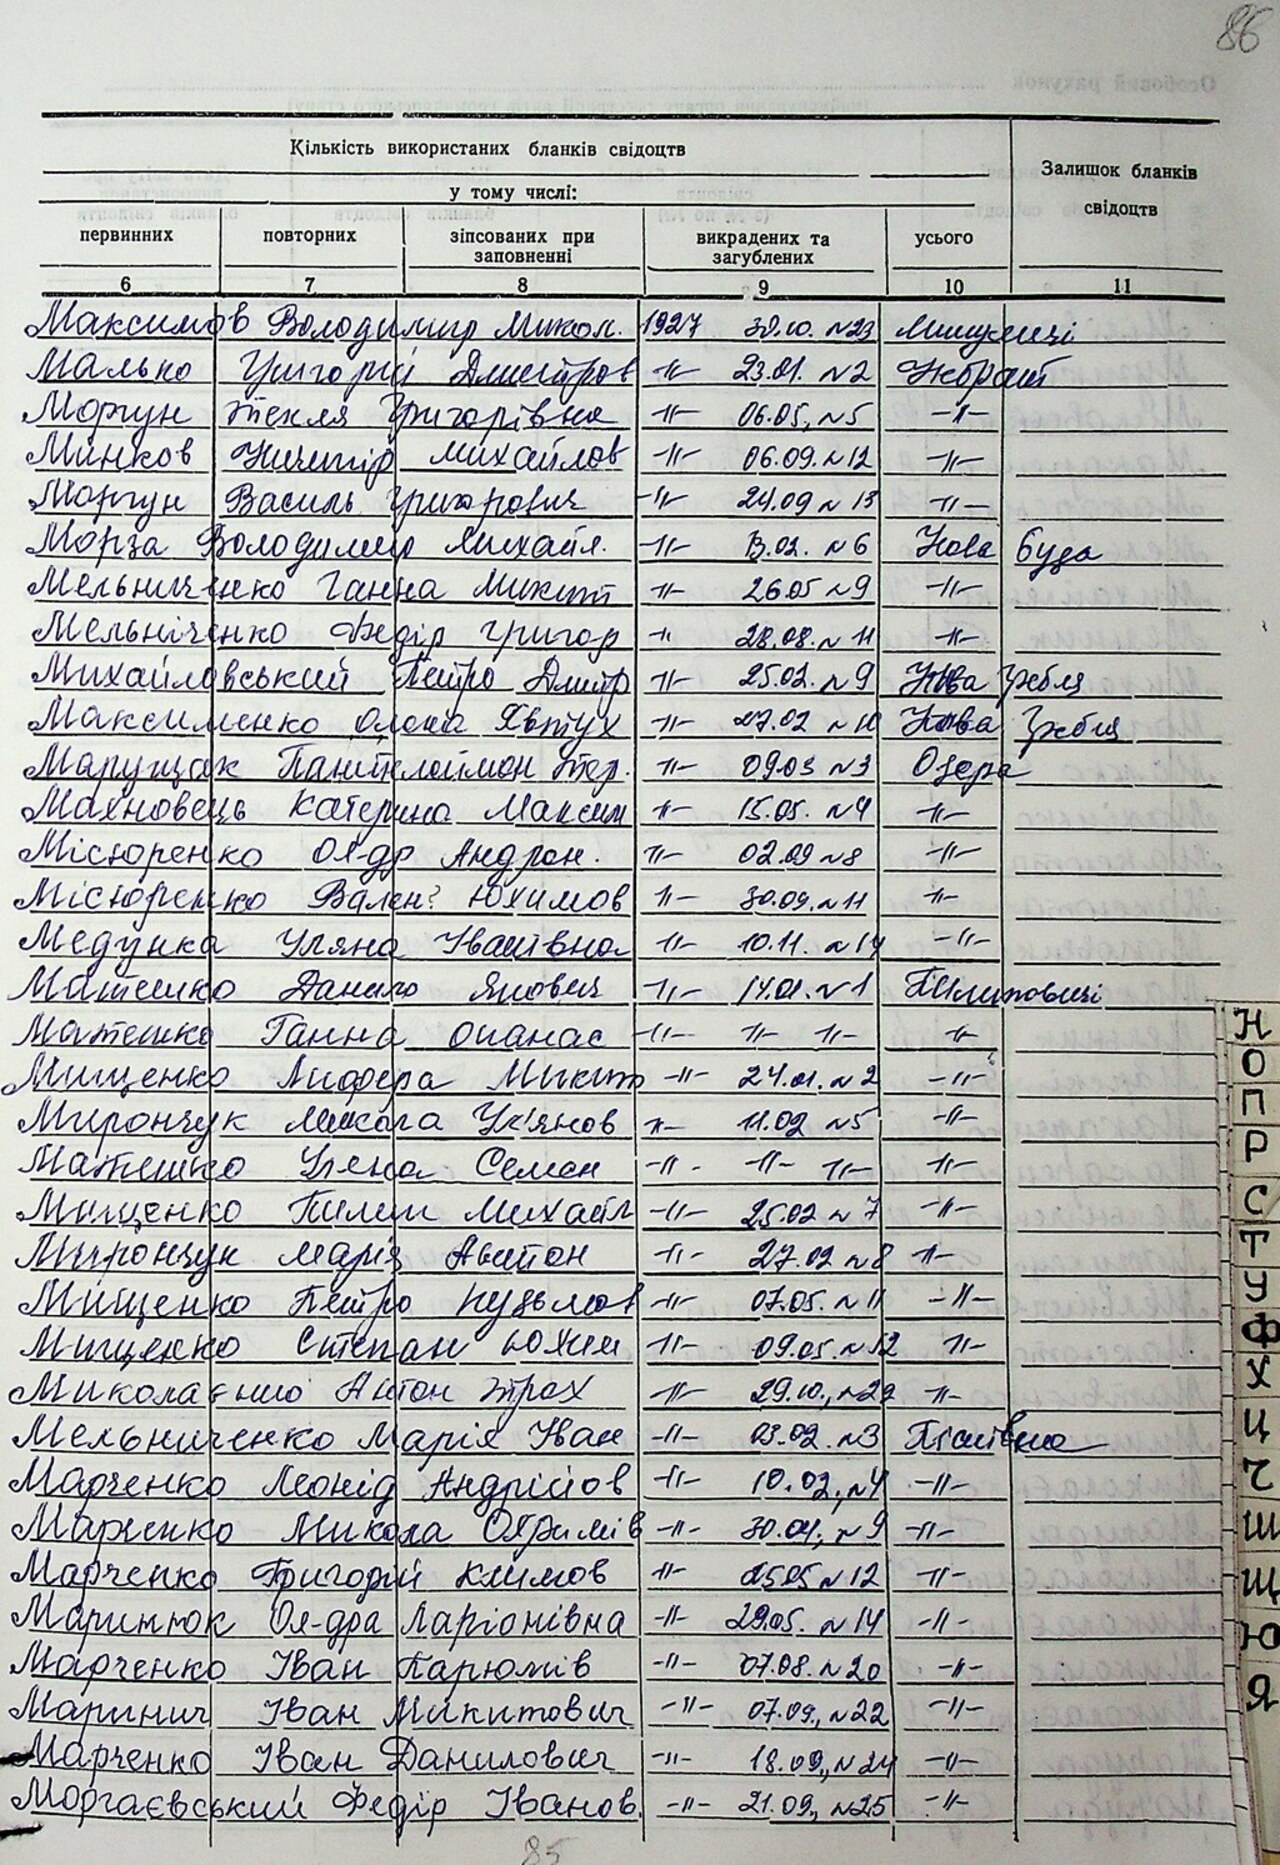 86
Кількість використаних бланків свідоцтв
Залишок бланків свідоцтв
у тому числі:
первинних повторних зіпсованих при заповненні викрадених та загублених усього
6 7 8 9 10 11
Максимов Володимир Микол. 1927 30.10. №23
Малько Григорій Дмитров -"- 23.01. №2
Моргун Текля Григорівна -"- 06.05., №5 -"-
Минков Ничипір Михайлов -"- 06.09. №12 -"-
Моргун Василь Григорович -"- 24.09 №13 -"-
Морза Володимир Михайл. -"- 13.02. №6 Нова Буда
Мельниченко Ганна Микит -"- 26.05 №9 -"-
Мельніченко Федір Григор -"- 28.08. №11 -"-
Михайловський Петро Дмитр -"- 25.02. №9 Нова Гребля
Максименко Олена Явтух -"- 27.02 №10 Нова Гребля
Марущак Пантелеймон Тер. -"- 09.03 №3 Озера
Махновець Катерина Максим -"- 15.05. №4 -"-
Місюренко Ол-др Андрон. -"- 02.09 №8 -"-
Місюренко Вален? Юхимов -"- 30.09. №11 -"-
Медунка Уляна Іванівна -"- 10.11. №14 -"-
Матешко Данило Якович -"- 14.01. №1 Пилиповичі
Матешко Ганна Опанас -"- -"- -"- -"-
Мищенко Лидера Микит -"- 24.01. №2 -"-
Мирончук Микола Ук'янов -"- 11.02 №5 -"-
Матешко Уляна Семен -"- -"- -"- -"-
Мищенко Пилип Михайл -"- 25.02 №7 -"-
Мирончук Марія Антон -"- 27.02 №8 -"-
Мищенко Петро Кузьмов -"- 07.05. №11 -"-
Мищенко Степан Юхим -"- 09.05. №12 -"-
Миколаєнко Антон Трох -"- 29.10., №22 -"-
Мельниченко Марія Іван -"- 03.02. №3 Пісківка
Марченко Леонід Андрійов -"- 10.02., №4 -"-
Марченко Микола Охримів -"- 30.04., №9 -"-
Марченко Григорій Климов -"- 05.05 №12 -"-
Маринюк Ол-дра Ларіонівна -"- 29.05. №14 -"-
Марченко Іван Парюмів -"- 07.08. №20 -"-
Маринич Іван Микитович -"- 07.09., №22 -"-
Марченко Іван Данилович -"- 18.09., №24 -"-
Моргаєвський Федір Іванов. -"- 21.09., №25 -"-
85
Н
О
П
Р
С
Т
У
Ф
Х
Ц
Ч
Ш
Щ
Ю
Я